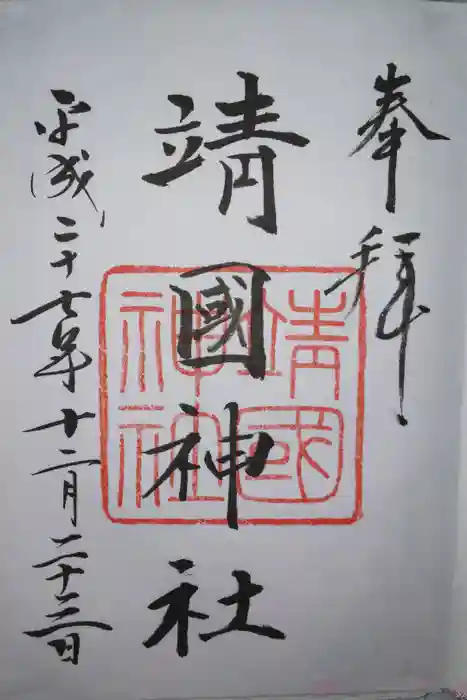 奉拝
靖國神社
靖國神社
平成二十七年十二月二十三日